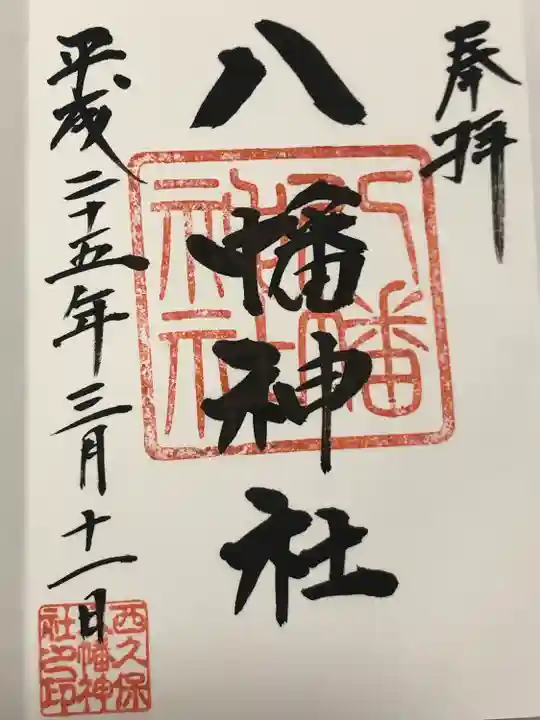 奉拝
八幡神社
八幡
神社
平成二十五年三月十一日
西久保
八幡神
社之印